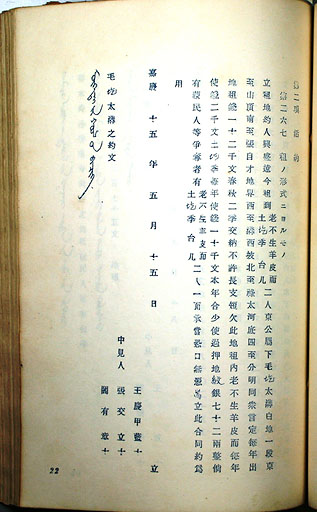 第二項 契約
第二六七 租ノ形式ニヨルモノ
立租地約人興盛遠今租到老不生羊皮而二人京公屬下毛 太溝白地一段東
至山頂南至張自才地界西至溝西坡北至 太河底四至分明同衆言定每年出
地租錢一十二千文春秋二季交納不許長支短欠此地租內老不生羊皮而每年
使錢二千文土 李 每年使錢一十千文本年合少使過押地紋銀七十二兩整倘
有蒙民人等爭奪者有老不生羊皮而 土 李台儿二人一面承當 口 憑爲立此合同約爲
用
嘉慶十五年五月十五日 立
中見人 王慶甲 十
張交立十
閻有章十
毛 太溝之約文
22